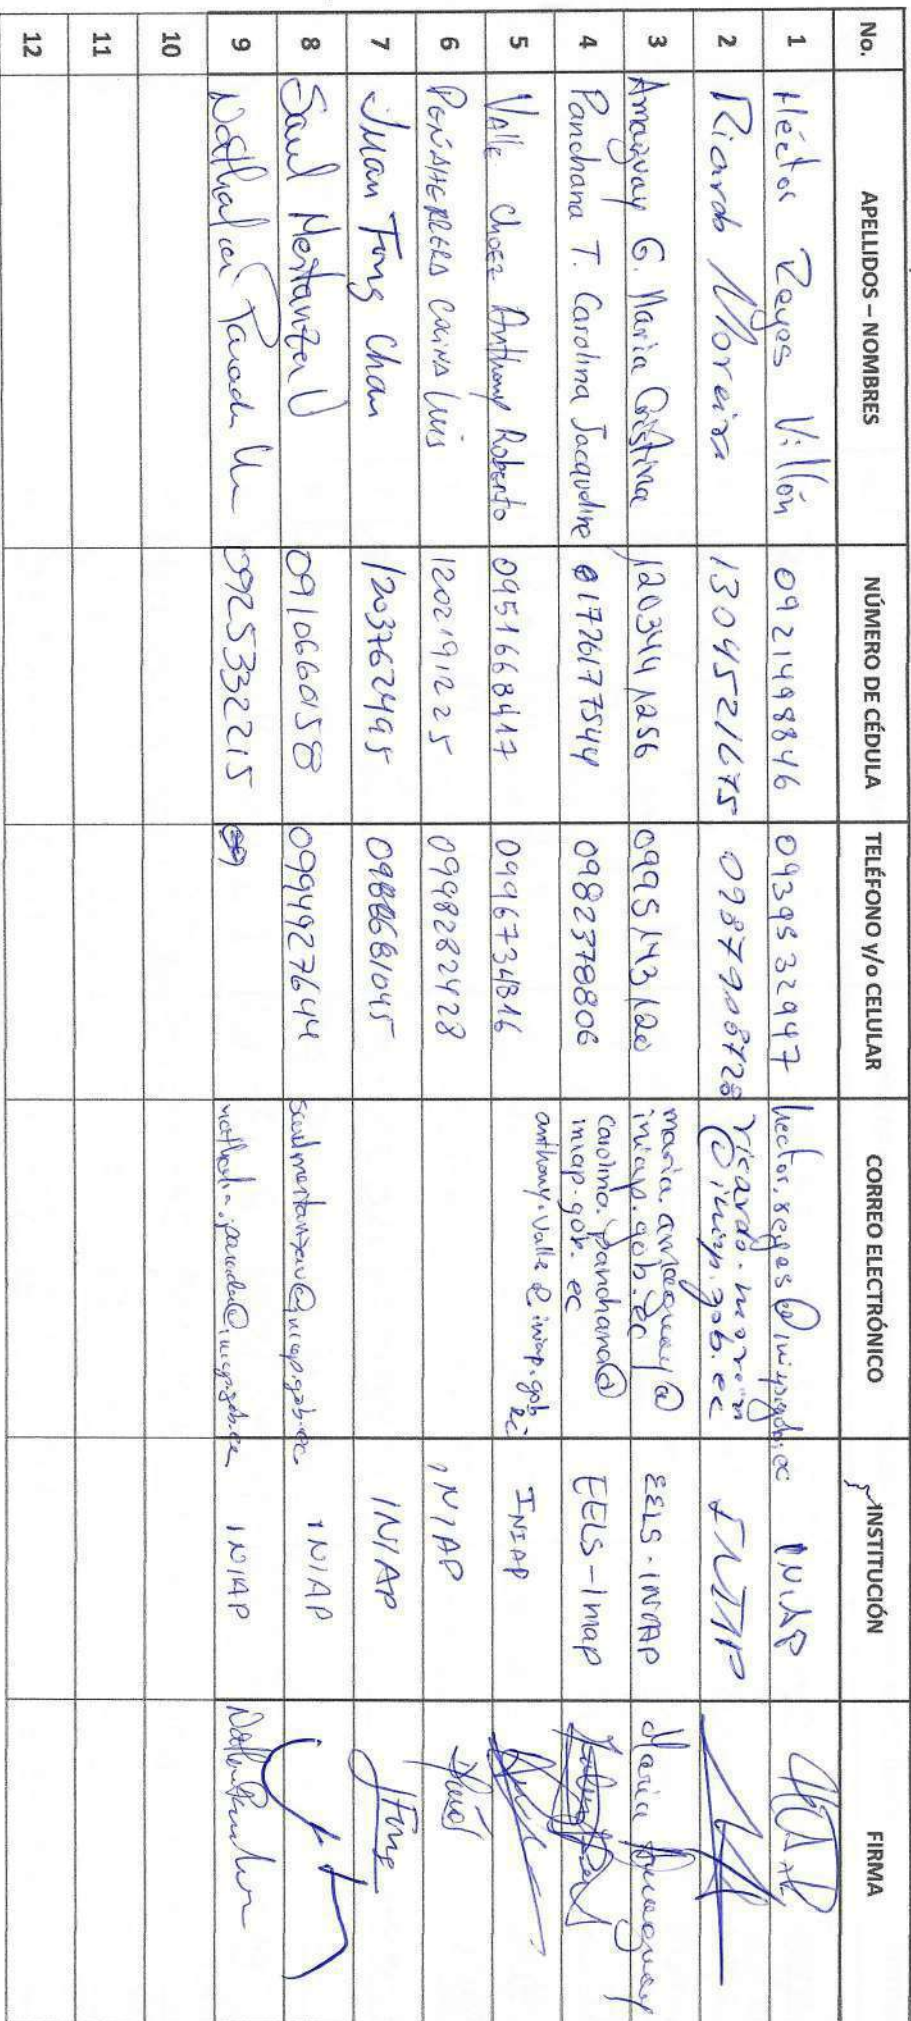 No. APELLIDOS – NOMBRES NÚMERO DE CÉDULA TELÉFONO y/o CELULAR CORREO ELECTRÓNICO INSTITUCIÓN FIRMA
1 Héctor Reyes Villón 0921498846 0939532947 hector.reyes@iniap.gob.ec INIAP
2 Ricardo Moreira 1304521675 0987908728 ricardo.moreira
@iniap.gob.ec INIAP
3 Amaguay G. Maria Cristina 1203441256 0995143120 maria.amaguay@
iniap.gob.ec EELS-INIAP Maria Amaguay
4 Panchana T. Carolina Jacqueline 01726177544 0982378806 carolina.panchana@
iniap.gob.ec EELS-Iniap
5 Valle Choez Anthony Roberto 0951668417 0996734816 anthony.valle@iniap.gob
ec INIAP
6 PEÑAHERRERA COLINA Luis 1202191225 0998282428 INIAP
7 Juan Fong Chan 1203762495 INIAP JFong
8 Saul Mestanza U 0910660158 0994927644 saul.mestanza@iniap.gob.ec INIAP
9 Nathalia Parada 0925332215 nathalia.parada@iniap.gob.ec INIAP
10
11
12